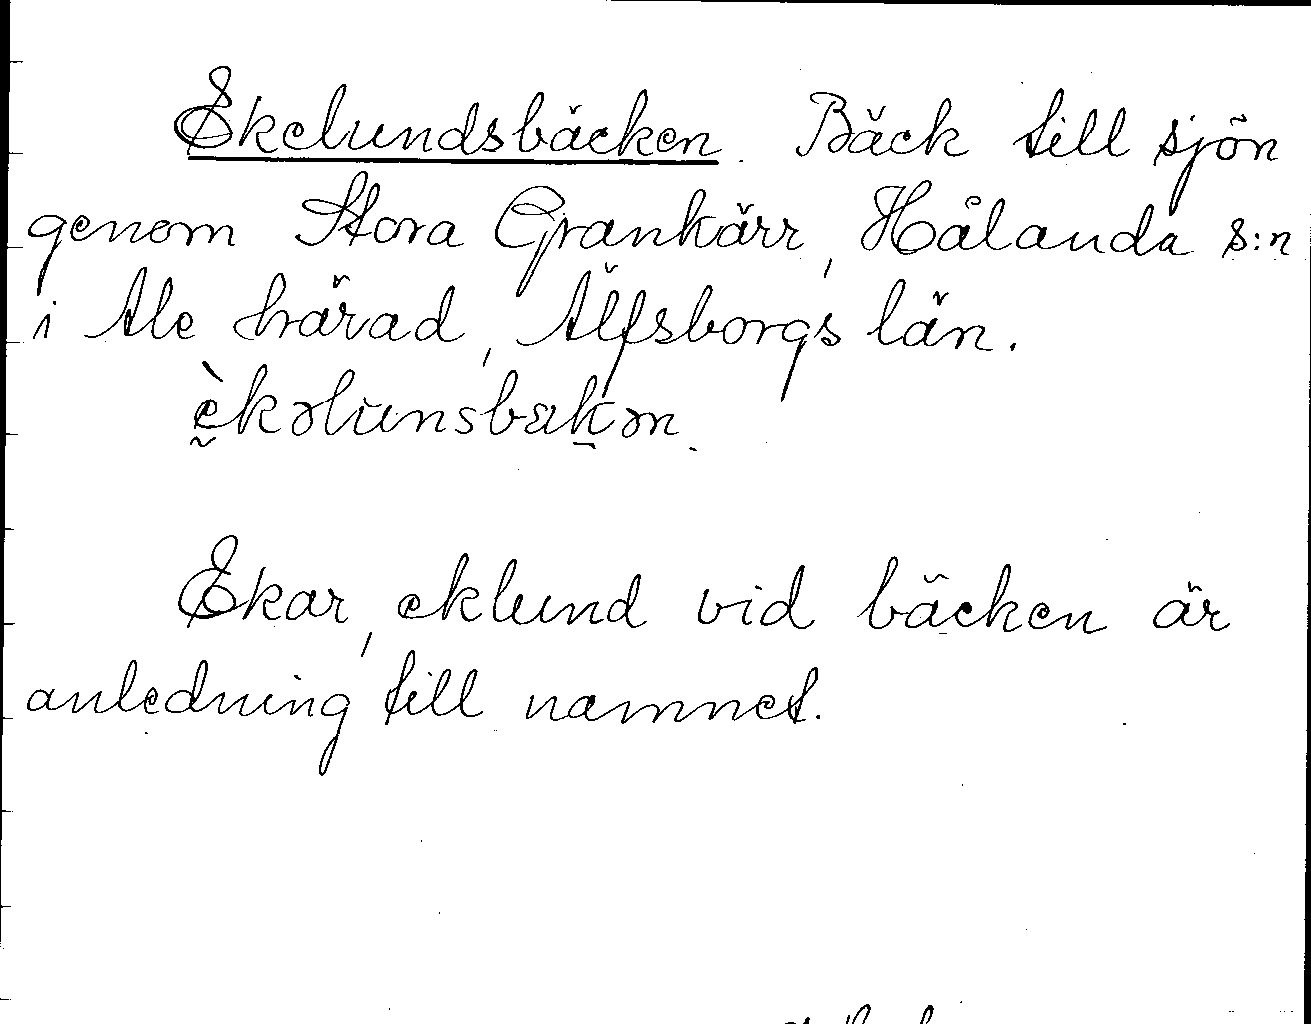 Ekelundsbäcken. Bäck till sjön
genom Stora Grankärr, Hålanda s:n
i Ale härad, Älfsborgs län.
ḛ̀kəlunsbæk̠ən.
Ekar, eklund vid bäcken är
anledning till namnet.